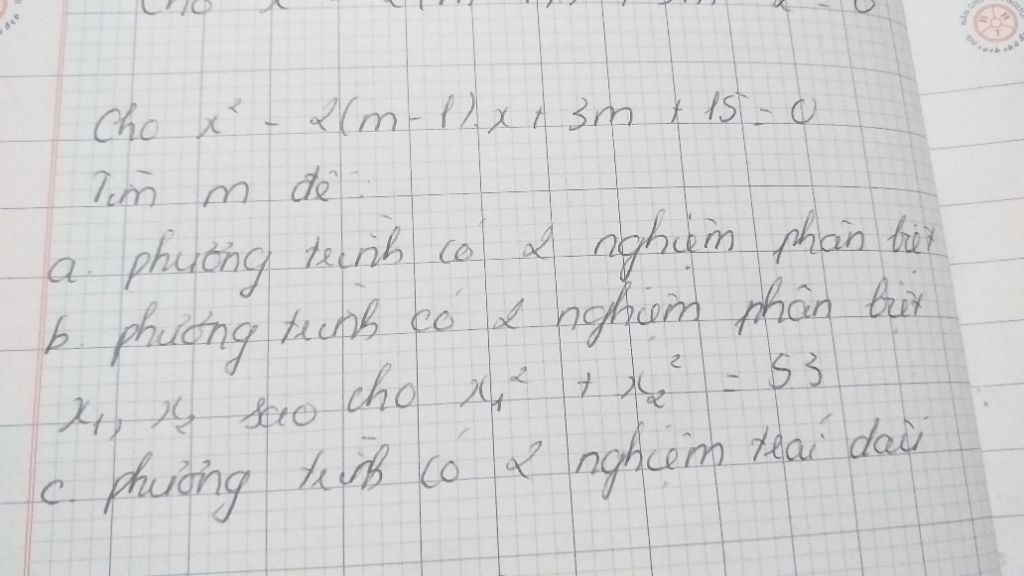 Cho x² - 2(m-1)x + 3m + 15 = 0
Tìm m để:
a. phương trình có 2 nghiệm phân biệt
b. phương trình có 2 nghiệm phân biệt
x₁, x₂ sao cho x₁² + x₂² = 53
c. phương trình có 2 nghiệm trái dấu